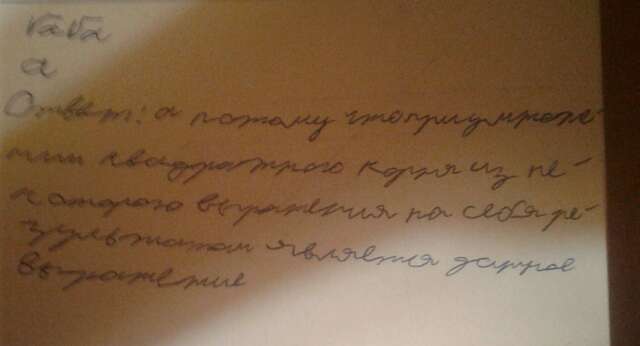 √a√a
a
Ответ: а потому что при умноже-
нии квадратного корня из не-
которого выражения на себя ре-
зультатом является данное
выражение